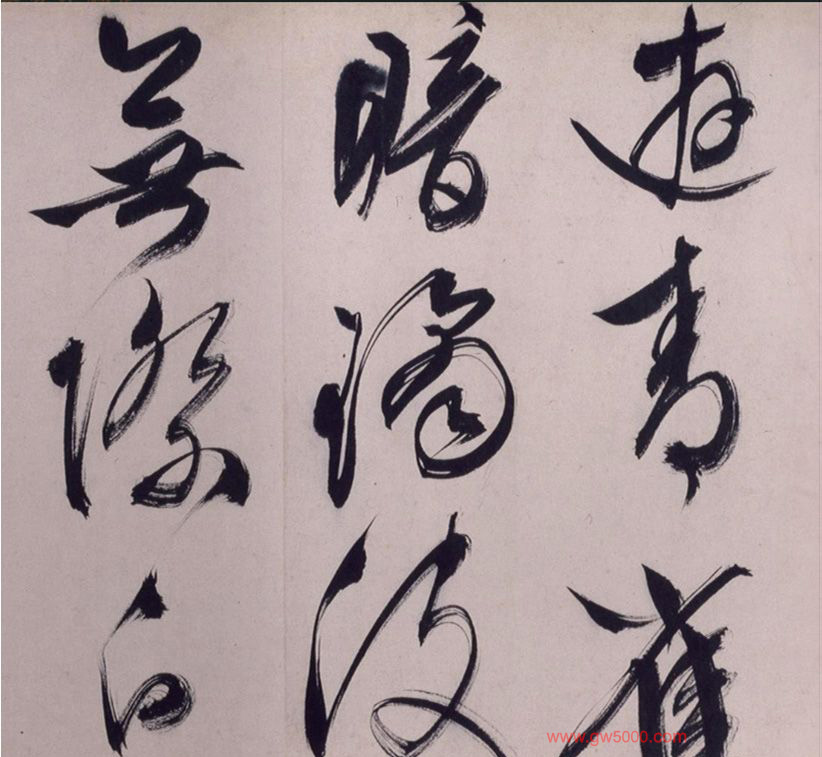 遊青雀
暗波
無際白
www.gw5000.com